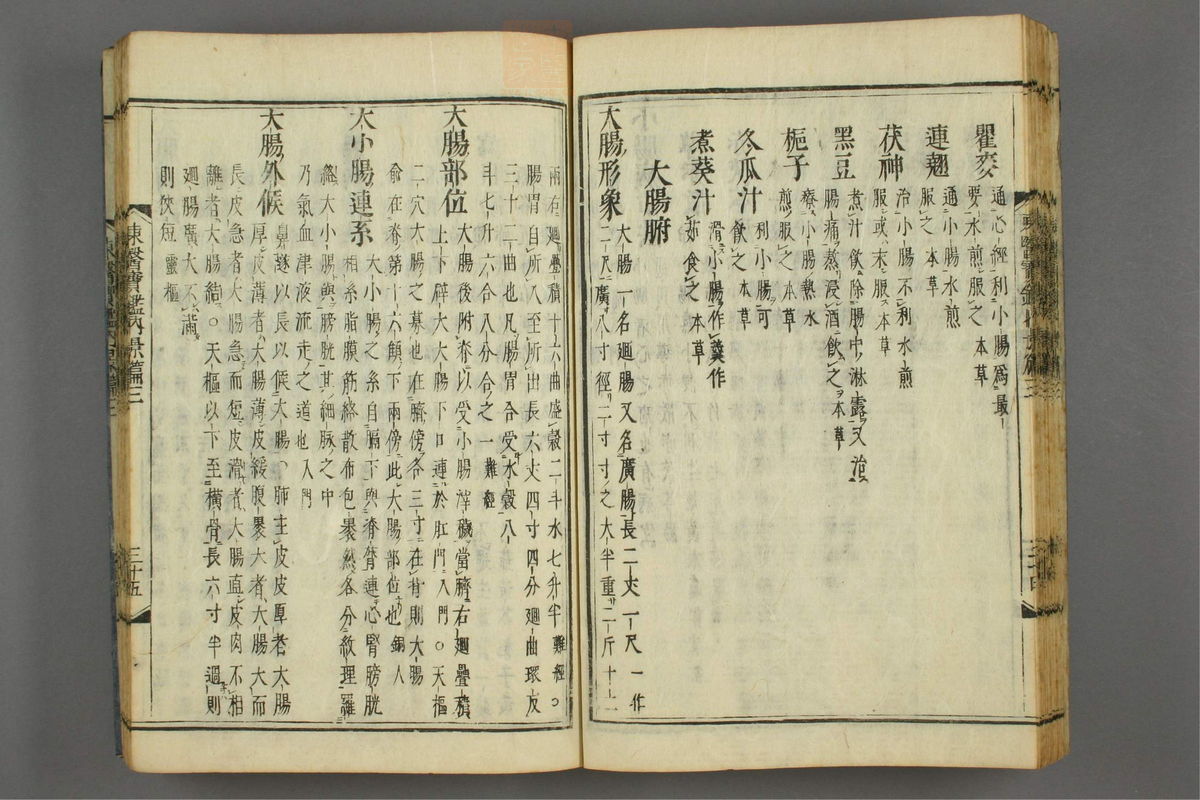 瞿麥 通心經利小腸爲最
要水煎服之 本草
連翹 通小腸水煎
服之 本草
茯神 治小腸不利水煎
服或末服 本草
黑豆 煮汁飲除腸中淋露又治
腸痛熬浸酒飲之 本草
梔子 療小腸熱水
煎服之 本草
冬瓜汁 利小腸可
飲之 本草
煮葵汁 滑小腸作羹作
茹食之 本草
大腸腑
大腸形象 大腸一名廻腸又名廣腸長二丈一尺 一作
二尺 廣八寸徑二寸寸之大半重二斤十二
兩右廻疊積十六曲盛穀二斗水七升半 難經 ○
腸胃自所入至所出長六丈四寸四分廻曲環反
三十二曲也凡腸胃合受水穀八
斗七升六合八分合之一 難經
大腸部位 大腸後附脊以受小腸滓穢當臍右廻疊積
上下辟大大腸下口連於肛門 入門 ○天樞
二穴大腸之募也在臍傍各三寸在背則大腸
兪在脊第十六顀下兩傍此大腸部位也 銅人
大小腸連系 大小腸之系自膈下與脊膂連心腎膀胱
相系脂膜筋絡散布包裹然各分紋理羅
絡大小腸與膀胱其細脉之中
乃氣血津液流走之道也 入門
大腸外候 鼻隧以長以候大腸○肺主皮皮厚者大腸
厚皮薄者大腸薄皮緩腹裹大者大腸大而
長皮急者大腸急而短皮滑者大腸直皮肉不相
離者大腸結○天樞以下至橫骨長六寸半過則
廻腸廣大不滿
則狹短 靈樞
東醫寶鑑內景篇三
三十五